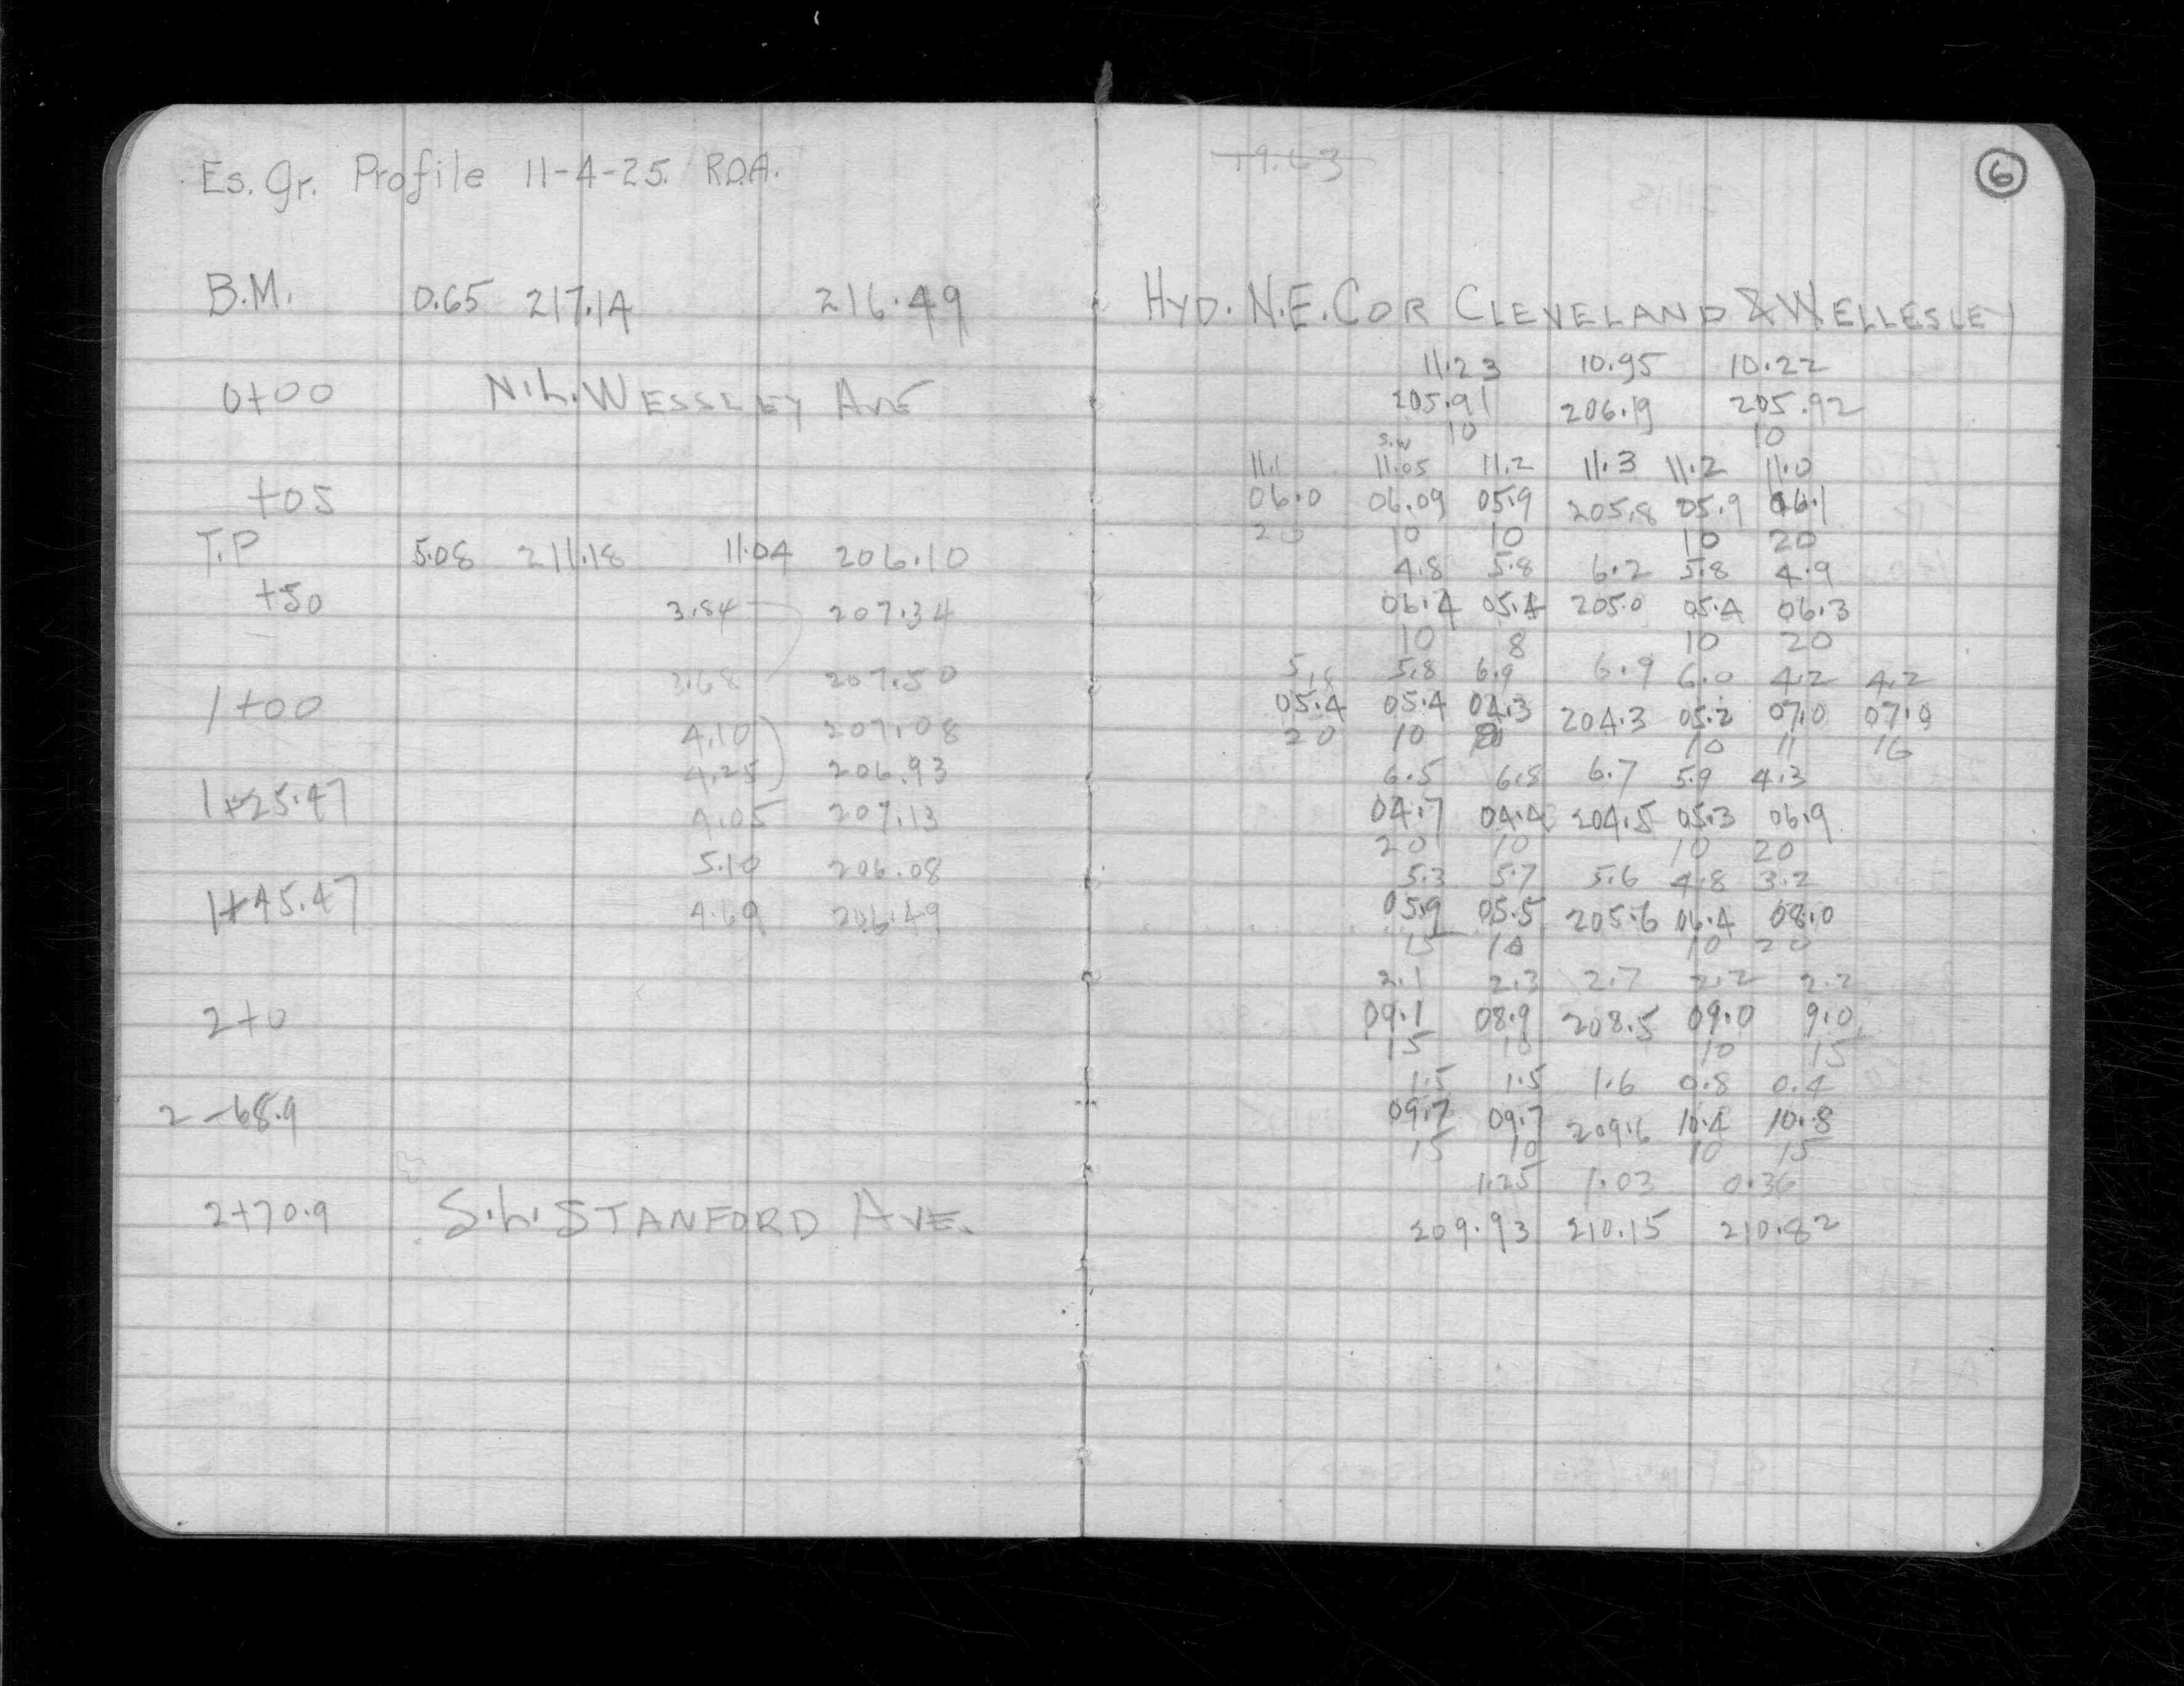 Es. Gr. Profile 11-4-25. R.D.A.
B.M. 0.65 217.14 216.49
0+00 N.L. WESSLEY AVE
+05
T.P 5.08 211.18 11.04 206.10
+50 3.84 207.34
3.68 207.50
1+00
4.10 207.08
4.25 206.93
1+25.47
4.05 207.13
5.10 206.08
1+45.47 4.69 206.49
2+0
2-68.9
2+70.9 S.L. STANFORD AVE.
19.63
6
HYD. N.E. COR CLEVELAND & WELLESLEY
11.23 10.95 10.22
205.91 206.19 205.92
S.W 10 10
11.1 11.05 11.2 11.3 11.2 11.0
06.0 06.09 05.9 205.8 05.9 06.1
20 10 10 10 20
4.8 5.8 6.2 5.8 4.9
06.4 05.4 205.0 05.4 06.3
10 8 10 20
5.8 5.8 6.9 6.9 6.0 4.2 4.2
05.4 05.4 04.3 204.3 05.2 07.0 07.0
20 10 8 10 11 16
6.5 6.8 6.7 5.9 4.3
04.7 04.4 204.5 05.3 06.9
20 10 10 20
5.3 5.7 5.6 4.8 3.2
05.9 05.5 205.6 06.4 08.0
15 10 10 20
2.1 2.3 2.7 2.2 2.2
09.1 08.9 208.5 09.0 9.0
15 10 10 15
1.5 1.5 1.6 0.8 0.4
09.7 09.7 209.6 10.4 10.8
15 10 10 15
1.25 1.03 0.36
209.93 210.15 210.82